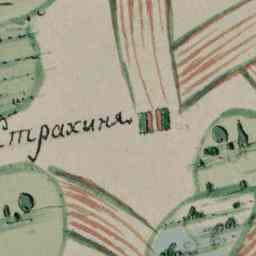 Страхиня.